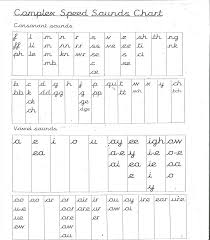 Complex Speed Sounds Chart
Consonant sounds
f l m n r s v z sh th ng
ff ll mm nn rr ss ve zz ti nk
ph le mb kn wr se s ci
c se
ce
b c d g h j p qu t w x y ch
bb k dd gg g pp tt wh tch
ck dge
ch
Vowel sounds
a e i o u ay ee igh ow
ea a-e y i-e o-e
ai ea ie oa
e i o
y
oo oo ar or air ir ou oy ire ear ure
u-e oor are ur ow oi
ue ore er
ew aw
au